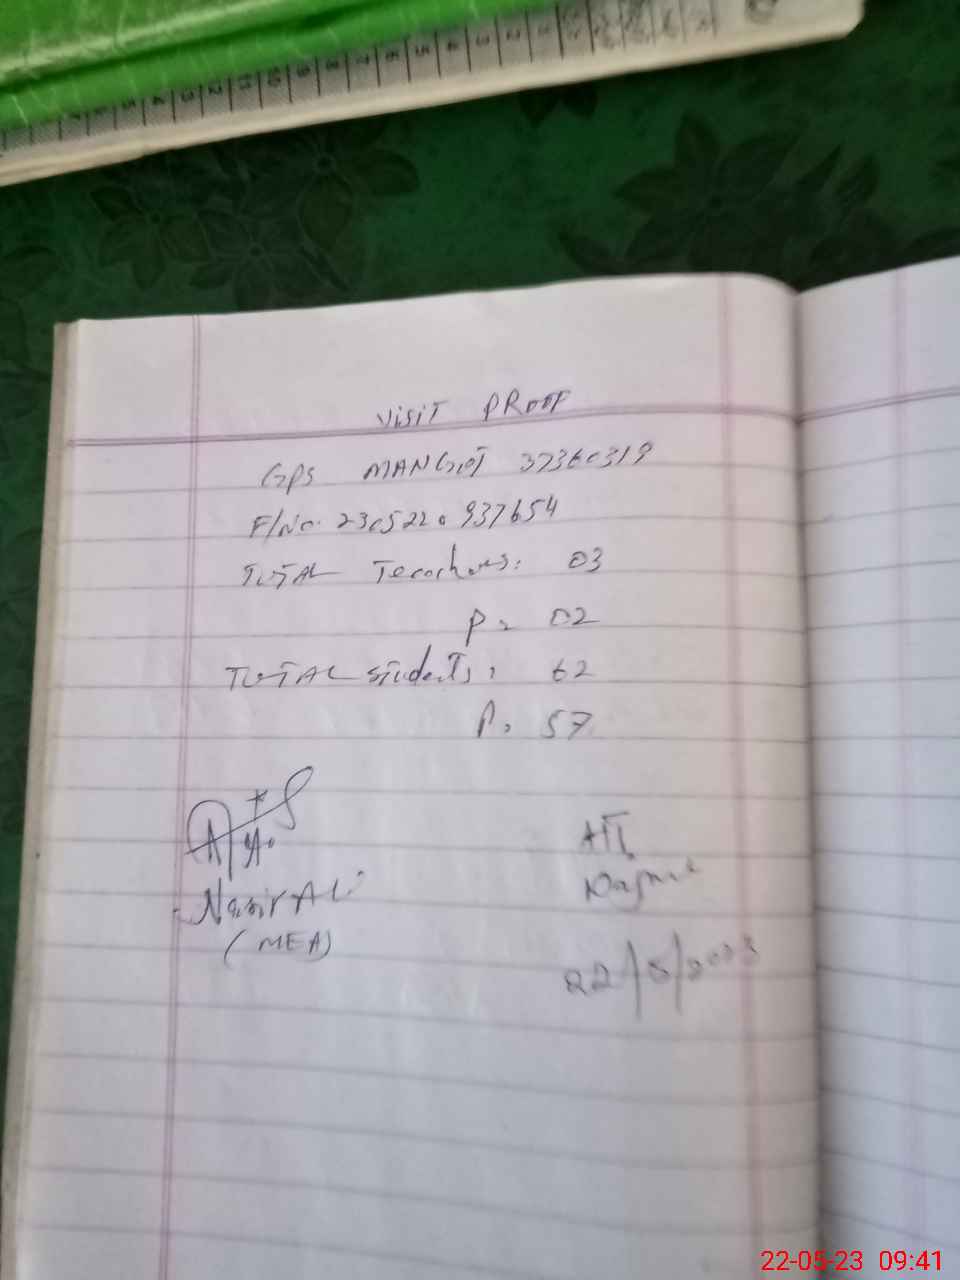 VISIT PROOF
GPS MANGOT 37360319
F/No. 2305220937654
TOTAL Teachers: 03
P, 02
TOTAL Students, 62
P, 57
Nasir Ali
(MEA)
22/5/2023
22-05-23 09:41